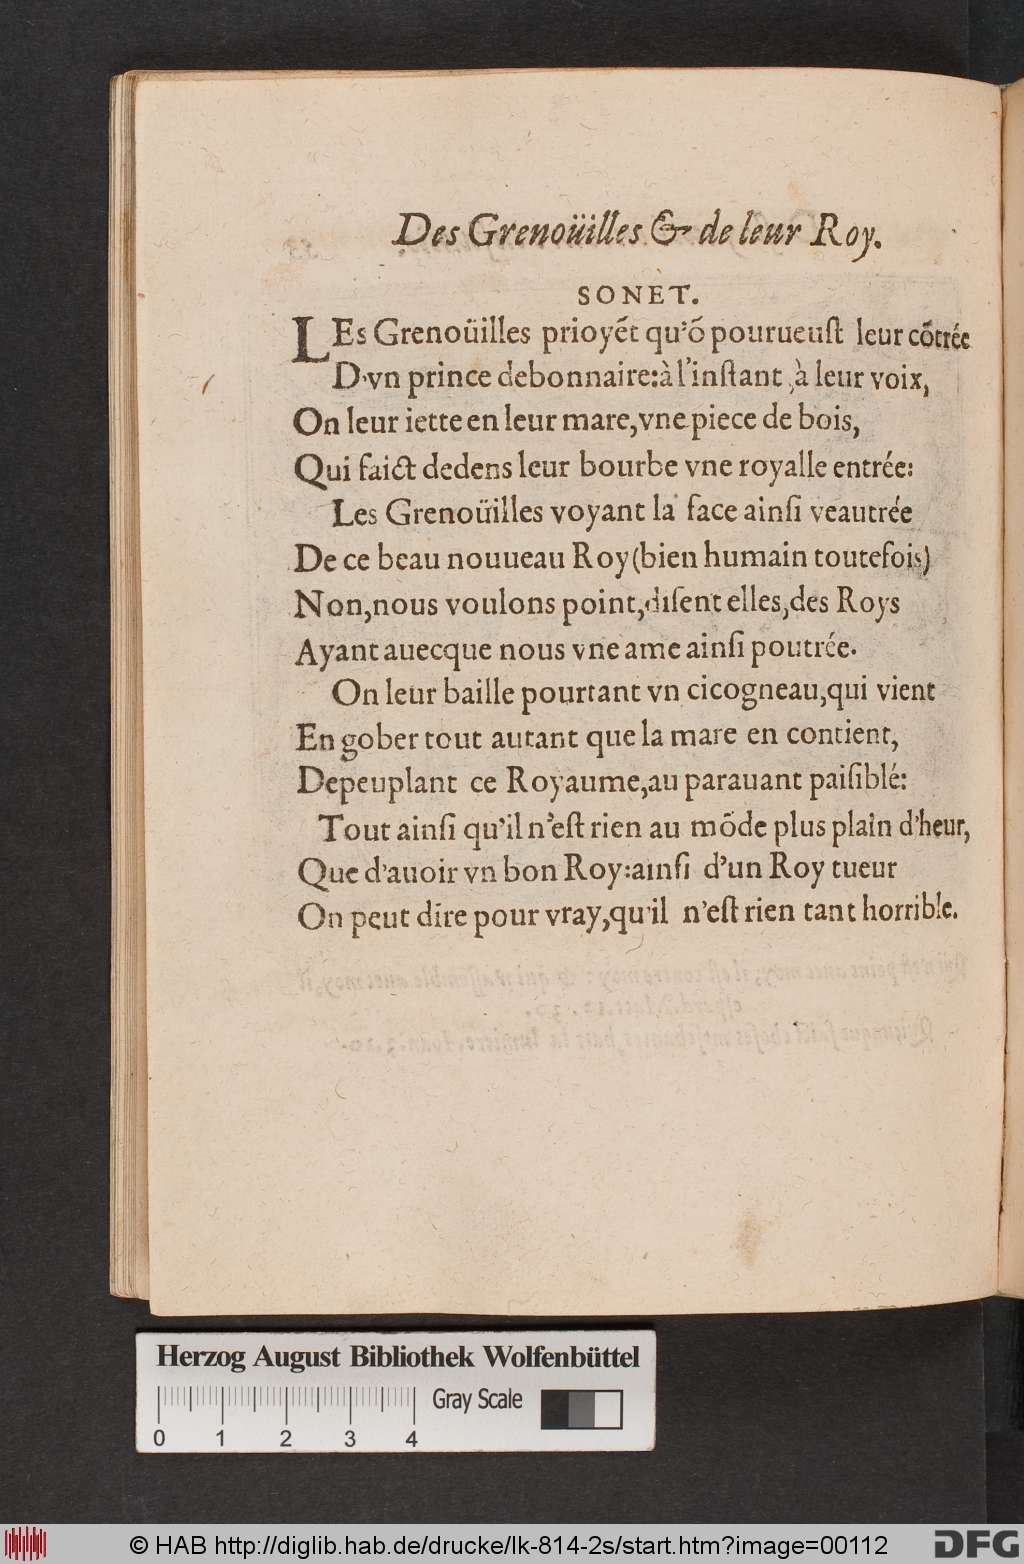 Des Grenoüilles & de leur Roy.
SONET.
LEs Grenoüilles prioyẽt qu'õ pourueuſt leur cõtrée
D'vn prince debonnaire: à l'inſtant, à leur voix,
On leur iette en leur mare, vne piece de bois,
Qui faict dedens leur bourbe vne royalle entrée:
Les Grenoüilles voyant la face ainſi veautrée
De ce beau nouueau Roy (bien humain toutefois)
Non, nous voulons point, diſent elles, des Roys
Ayant auecque nous vne ame ainſi poutrée.
On leur baille pourtant vn cicogneau, qui vient
En gober tout autant que la mare en contient,
Depeuplant ce Royaume, au parauant paiſiblé:
Tout ainſi qu'il n'eſt rien au mõde plus plain d'heur,
Que d'auoir vn bon Roy: ainſi d'un Roy tueur
On peut dire pour vray, qu'il n'eſt rien tant horrible.
Herzog August Bibliothek Wolfenbüttel
Gray Scale
0 1 2 3 4
© HAB http://diglib.hab.de/drucke/lk-814-2s/start.htm?image=00112
DFG